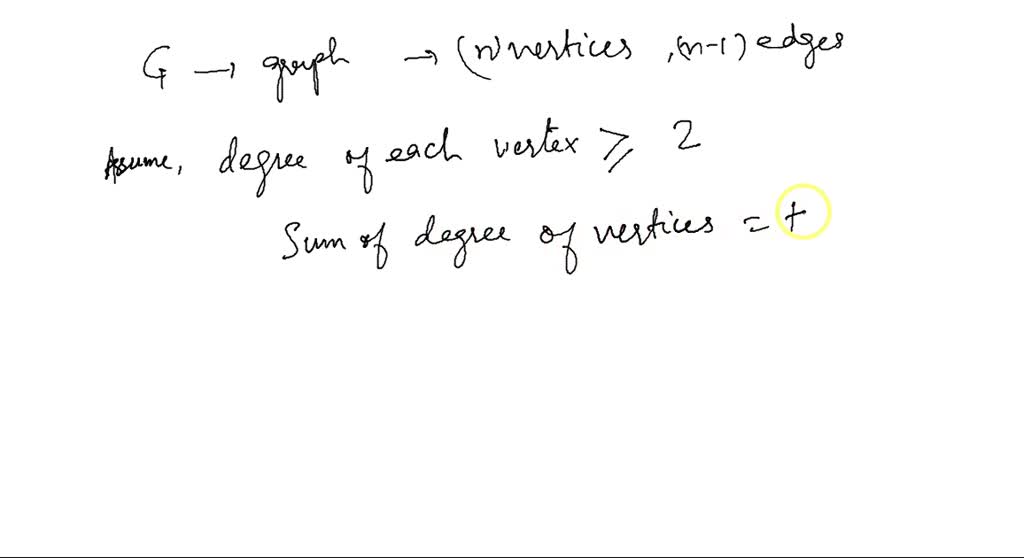 G → graph → (n) vertices , (n-1) edges
Assume, degree of each vertex ⩾ 2
Sum of degree of vertices = +